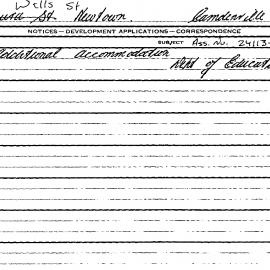 Wells St
St Newtown. Camdenville
NOTICES — DEVELOPMENT APPLICATIONS — CORRESPONDENCE
SUBJECT Ass. No. 24113-
Additional accommodation
Dept of Educat